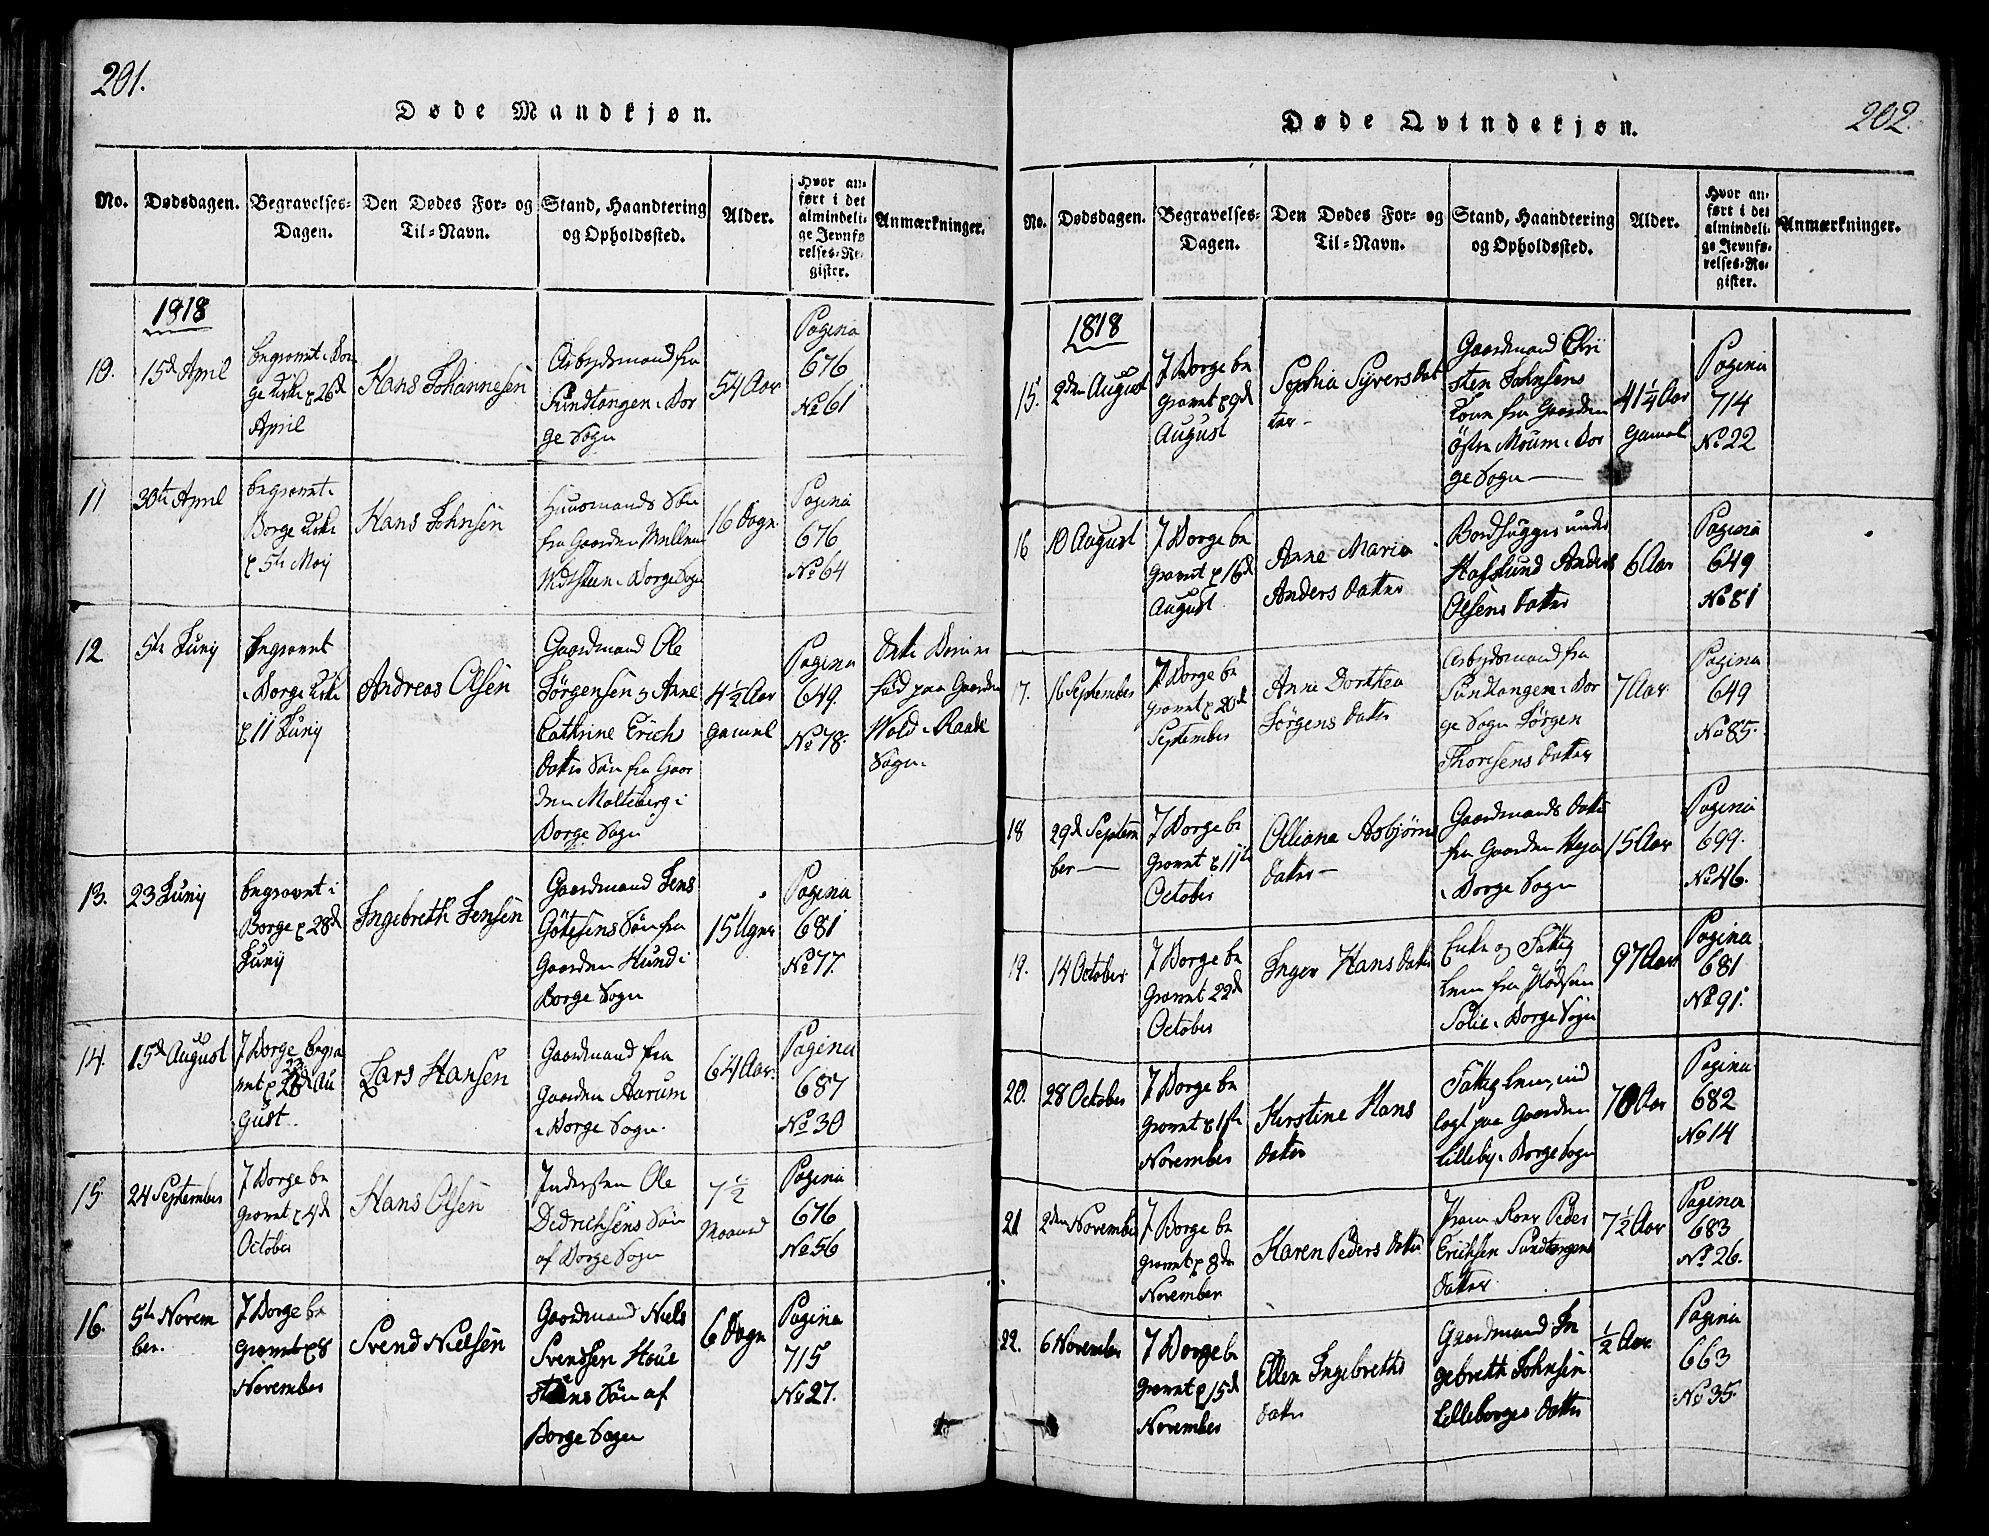 201.
Døde Mandkjøn.
No.
Dødsdagen.
Begravelses-
Dagen.
Den Dødes For- og
Til-Navn.
Stand, Haandtering
og Opholdssted.
Alder.
Hvor an-
ført i det
almindeli-
ge Jevnfø-
relses-Re-
gister.
Anmærkninger.
1818
10.
15d April
begravet i Bor
ge Kirke p 26d
April
Hans Johannesen
Arbeydsmand fra
Sundtangen i Bor
ge Sogn
54 Aar
Pagina
676
No 61
11
30te April
begravet i
Borge Kirke
p 5te Maj
Hans Johnsen
Huusmands Søn
fra Gaarden Mellem
Borge Sogn
16 Dage
Pagina
676
No 64
12
5te Junij
begravet
i Borge Kirke
p 11 Junij
Andreas Olsen
Gaardmand Ole
Jørgensen og Anne
Cathrine Erichs
datter Søn fra Gaar
den Molteberg i
Borge Sogn
4½ Aar
gammel
Pagina
649.
No 78.
Dette Barn er
fød paa Gaarden
Wold i Raade
Sogn.
13.
23 Junij
begravet i
Borge p 28d
Junij
Ingebreth Jensen
Gaardmand Jens
Götesens Søn fra
Gaarden Hund i
Borge Sogn
15 Uger
Pagina
681
No 77.
14.
15d August
J Borge begra
vet p 23d Au
gust.
Lars Hansen
Gaardmand fra
Gaarden Aarum
i Borge Sogn.
64 Aar.
Pagina
687
No 30
15
24 September
J Borge be
gravet p 4d
October
Hans Olsen
Indersten Ole
Didrichsens Søn
af Borge Sogn
7½
Maaned
Pagina
676
No 56
16.
5te Novem
ber.
J Borge be
gravet p 8
November
Svend Nielsen
Gaardmand Niels
Svendsen Houe
stens Søn af
Borge Sogn
6 Dage
Pagina
715
No 27.
202.
Døde Qvindekjøn.
No.
Dødsdagen.
Begravelses-
Dagen.
Den Dødes For- og
Til-Navn.
Stand, Haandtering
og Opholdssted.
Alder.
Hvor an-
ført i det
almindeli-
ge Jevnfø-
relses-Re-
gister.
Anmærkninger.
1818
15.
2den August
J Borge be
gravet p 9d
August
Sophia Syvers dat
ter
Gaardmand Chri
sten Johnsens
Kone fra Gaarden
Östre Moum i Bor
ge Sogn
41¼ Aar
gammel
Pagina
714
No 22
16
10 August
J Borge be
gravet p 16d
August
Anne Maria
Anders datter
Bordhugger under
Hafslund Anders
Olsens datter
6 Aar
Pagina
649
No 81
17.
16 September
J Borge be
gravet p 20d
September
Anne Dorthea
Jørgens datter
Arbeydsmand fra
Sundtangen i Bor
ge Sogn Jørgen
Thoresens datter
7 Aar.
Pagina
649
No 85.
18
29d Septem
ber
J Borge be
gravet p 11te
October
Olliana Asbjørns
datter
Gaardmands datter
fra Gaarden Heja
i Borge Sogn
15 Aar
Pagina
699.
No 46.
19.
14 October
J Borge be
gravet 22d
October
Inger Hans datter
Enke og Fattig
lem fra
Solie i Borge Sogn
97 Aar
Pagina
681
No 91.
20.
28 October
J Borge be
gravet p 1ste
November
Kirstine Hans
datter
Fattiglem, ind
lagt paa Gaarden
Lilleby i Borge Sogn
70 Aar
Pagina
682
No 14
21
2den November
J Borge be
gravet p 8de
November
Karen Peders datter
Pram Roer Peder
Erichsen Sundtangens
datter
7½ Aar
Pagina
683
No 26.
22.
6 November
J Borge be
gravet p 15d
November
Ellen Ingebreths
datter
Gaardmand In
gebreth Johnsen
Lilleborges datter
½ Aar.
Pagina
663
No 35.